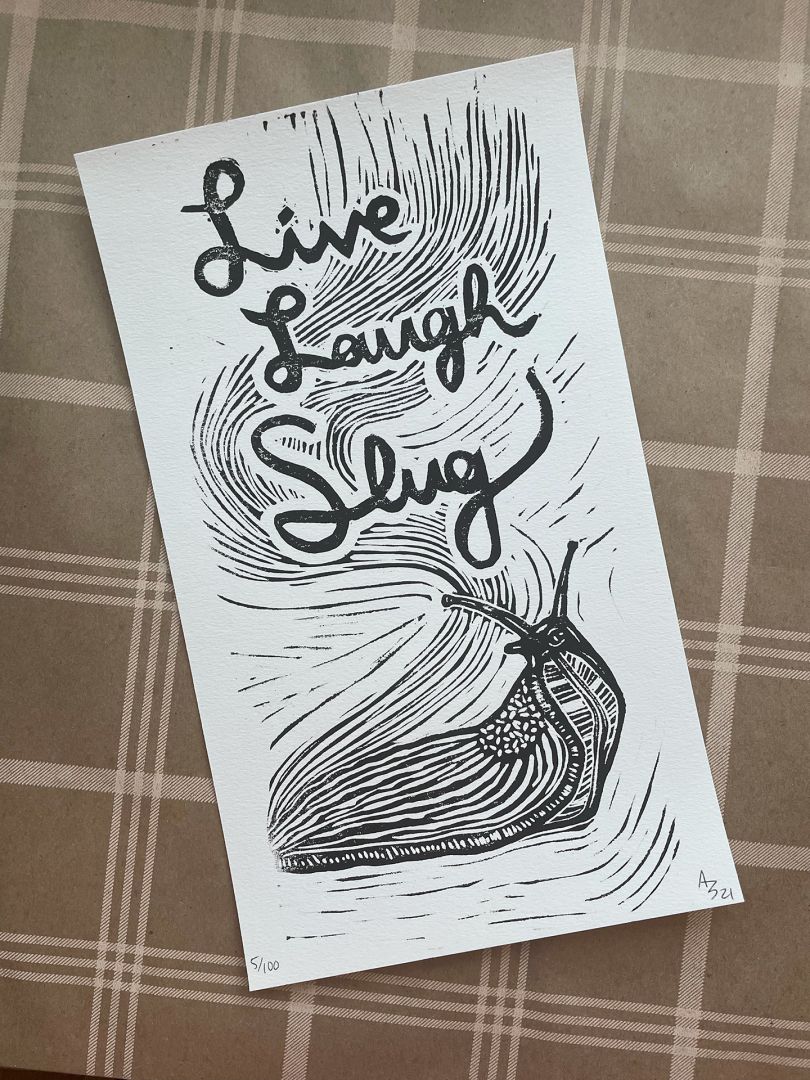 Live
Laugh
Slug
5/100
AB 21